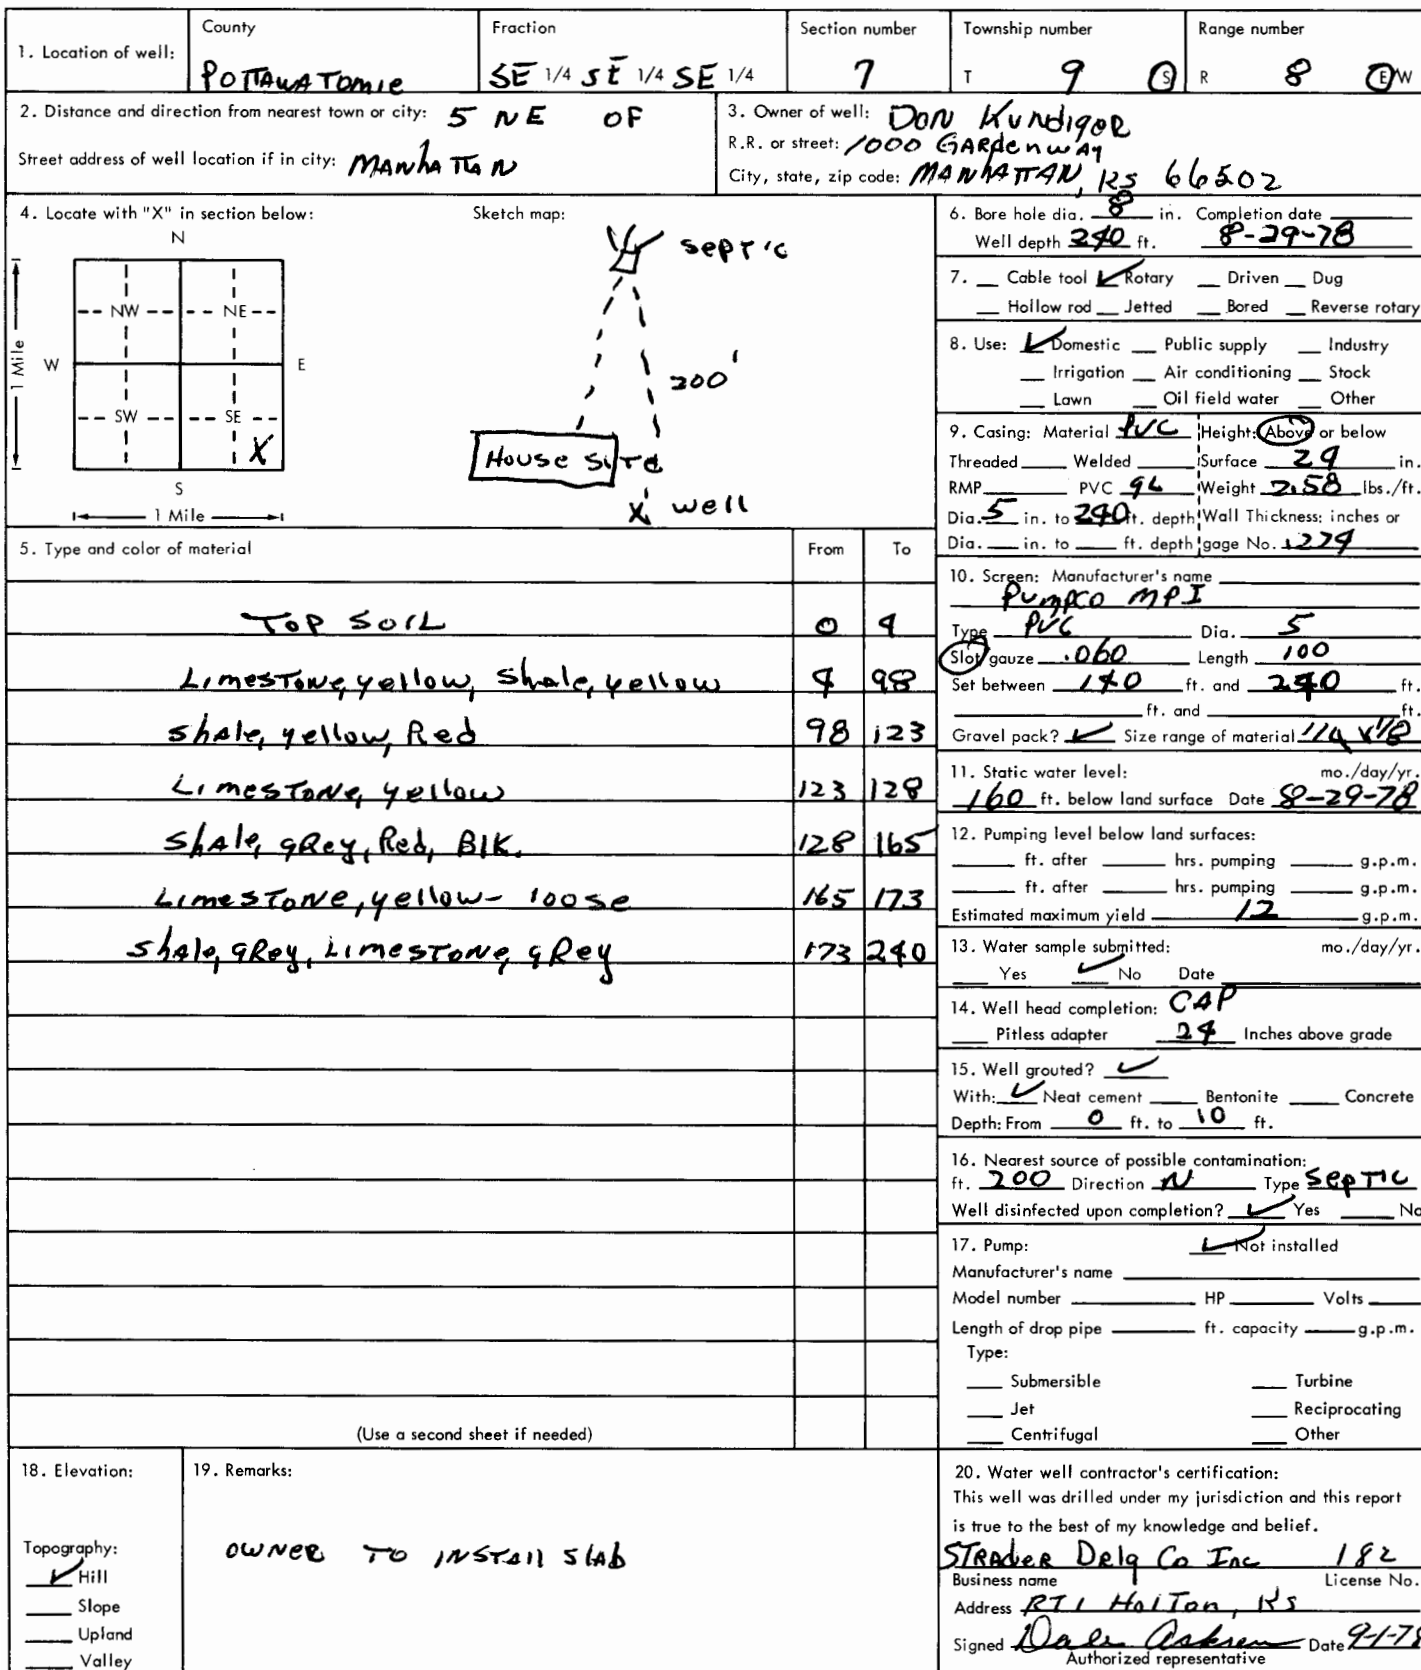 1. Location of well:
County
POTTAWATOMIE
Fraction
SE 1/4 SE 1/4 SE 1/4
Section number
7
Township number
T 9 S
Range number
R 8 E/W
2. Distance and direction from nearest town or city: 5 NE OF
Street address of well location if in city: MANHATTAN
3. Owner of well: DON KUNDIGER
R.R. or street: 1000 GARDENWAY
City, state, zip code: MANHATTAN, KS 66502
4. Locate with "X" in section below:
N
NW NE
W E
SW SE
X
S
1 Mile
1 Mile
Sketch map:
SEPTIC
200'
House Site
X well
5. Type and color of material From To
TOP SOIL 0 4
Limestone, yellow, Shale, yellow 4 98
Shale, yellow, Red 98 123
Limestone, yellow 123 128
Shale, gRey, Red, BlK. 128 165
Limestone, yellow- loose 165 173
Shale, gRey, Limestone, gRey 173 240
(Use a second sheet if needed)
6. Bore hole dia. 8 in. Completion date
Well depth 240 ft. 8-29-78
7. Cable tool ✓ Rotary Driven Dug
Hollow rod Jetted Bored Reverse rotary
8. Use: ✓ Domestic Public supply Industry
Irrigation Air conditioning Stock
Lawn Oil field water Other
9. Casing: Material PVC Height: Above or below
Threaded Welded Surface 24 in.
RMP PVC GL Weight 2.58 lbs./ft.
Dia. 5 in. to 240 ft. depth Wall Thickness: inches or
Dia. in. to ft. depth gage No. .274
10. Screen: Manufacturer's name
PUMPCO MPI
Type PVC Dia. 5
Slot gauze .060 Length 100
Set between 140 ft. and 240 ft.
ft. and ft.
Gravel pack? ✓ Size range of material 1/4 x 1/8
11. Static water level: mo./day/yr.
160 ft. below land surface Date 8-29-78
12. Pumping level below land surfaces:
ft. after hrs. pumping g.p.m.
ft. after hrs. pumping g.p.m.
Estimated maximum yield 12 g.p.m.
13. Water sample submitted: mo./day/yr.
Yes ✓ No Date
14. Well head completion: CAP
Pitless adapter 24 Inches above grade
15. Well grouted? ✓
With: ✓ Neat cement Bentonite Concrete
Depth: From 0 ft. to 10 ft.
16. Nearest source of possible contamination:
ft. 200 Direction N Type SEPTIC
Well disinfected upon completion? ✓ Yes No
17. Pump: ✓ Not installed
Manufacturer's name
Model number HP Volts
Length of drop pipe ft. capacity g.p.m.
Type:
Submersible Turbine
Jet Reciprocating
Centrifugal Other
18. Elevation:
Topography:
✓ Hill
Slope
Upland
Valley
19. Remarks:
OWNER TO INSTALL SLAB
20. Water well contractor's certification:
This well was drilled under my jurisdiction and this report
is true to the best of my knowledge and belief.
STRADER DRLG Co Inc 182
Business name License No.
Address RT1 Holton, KS
Signed Dale Askren Date 9-1-78
Authorized representative